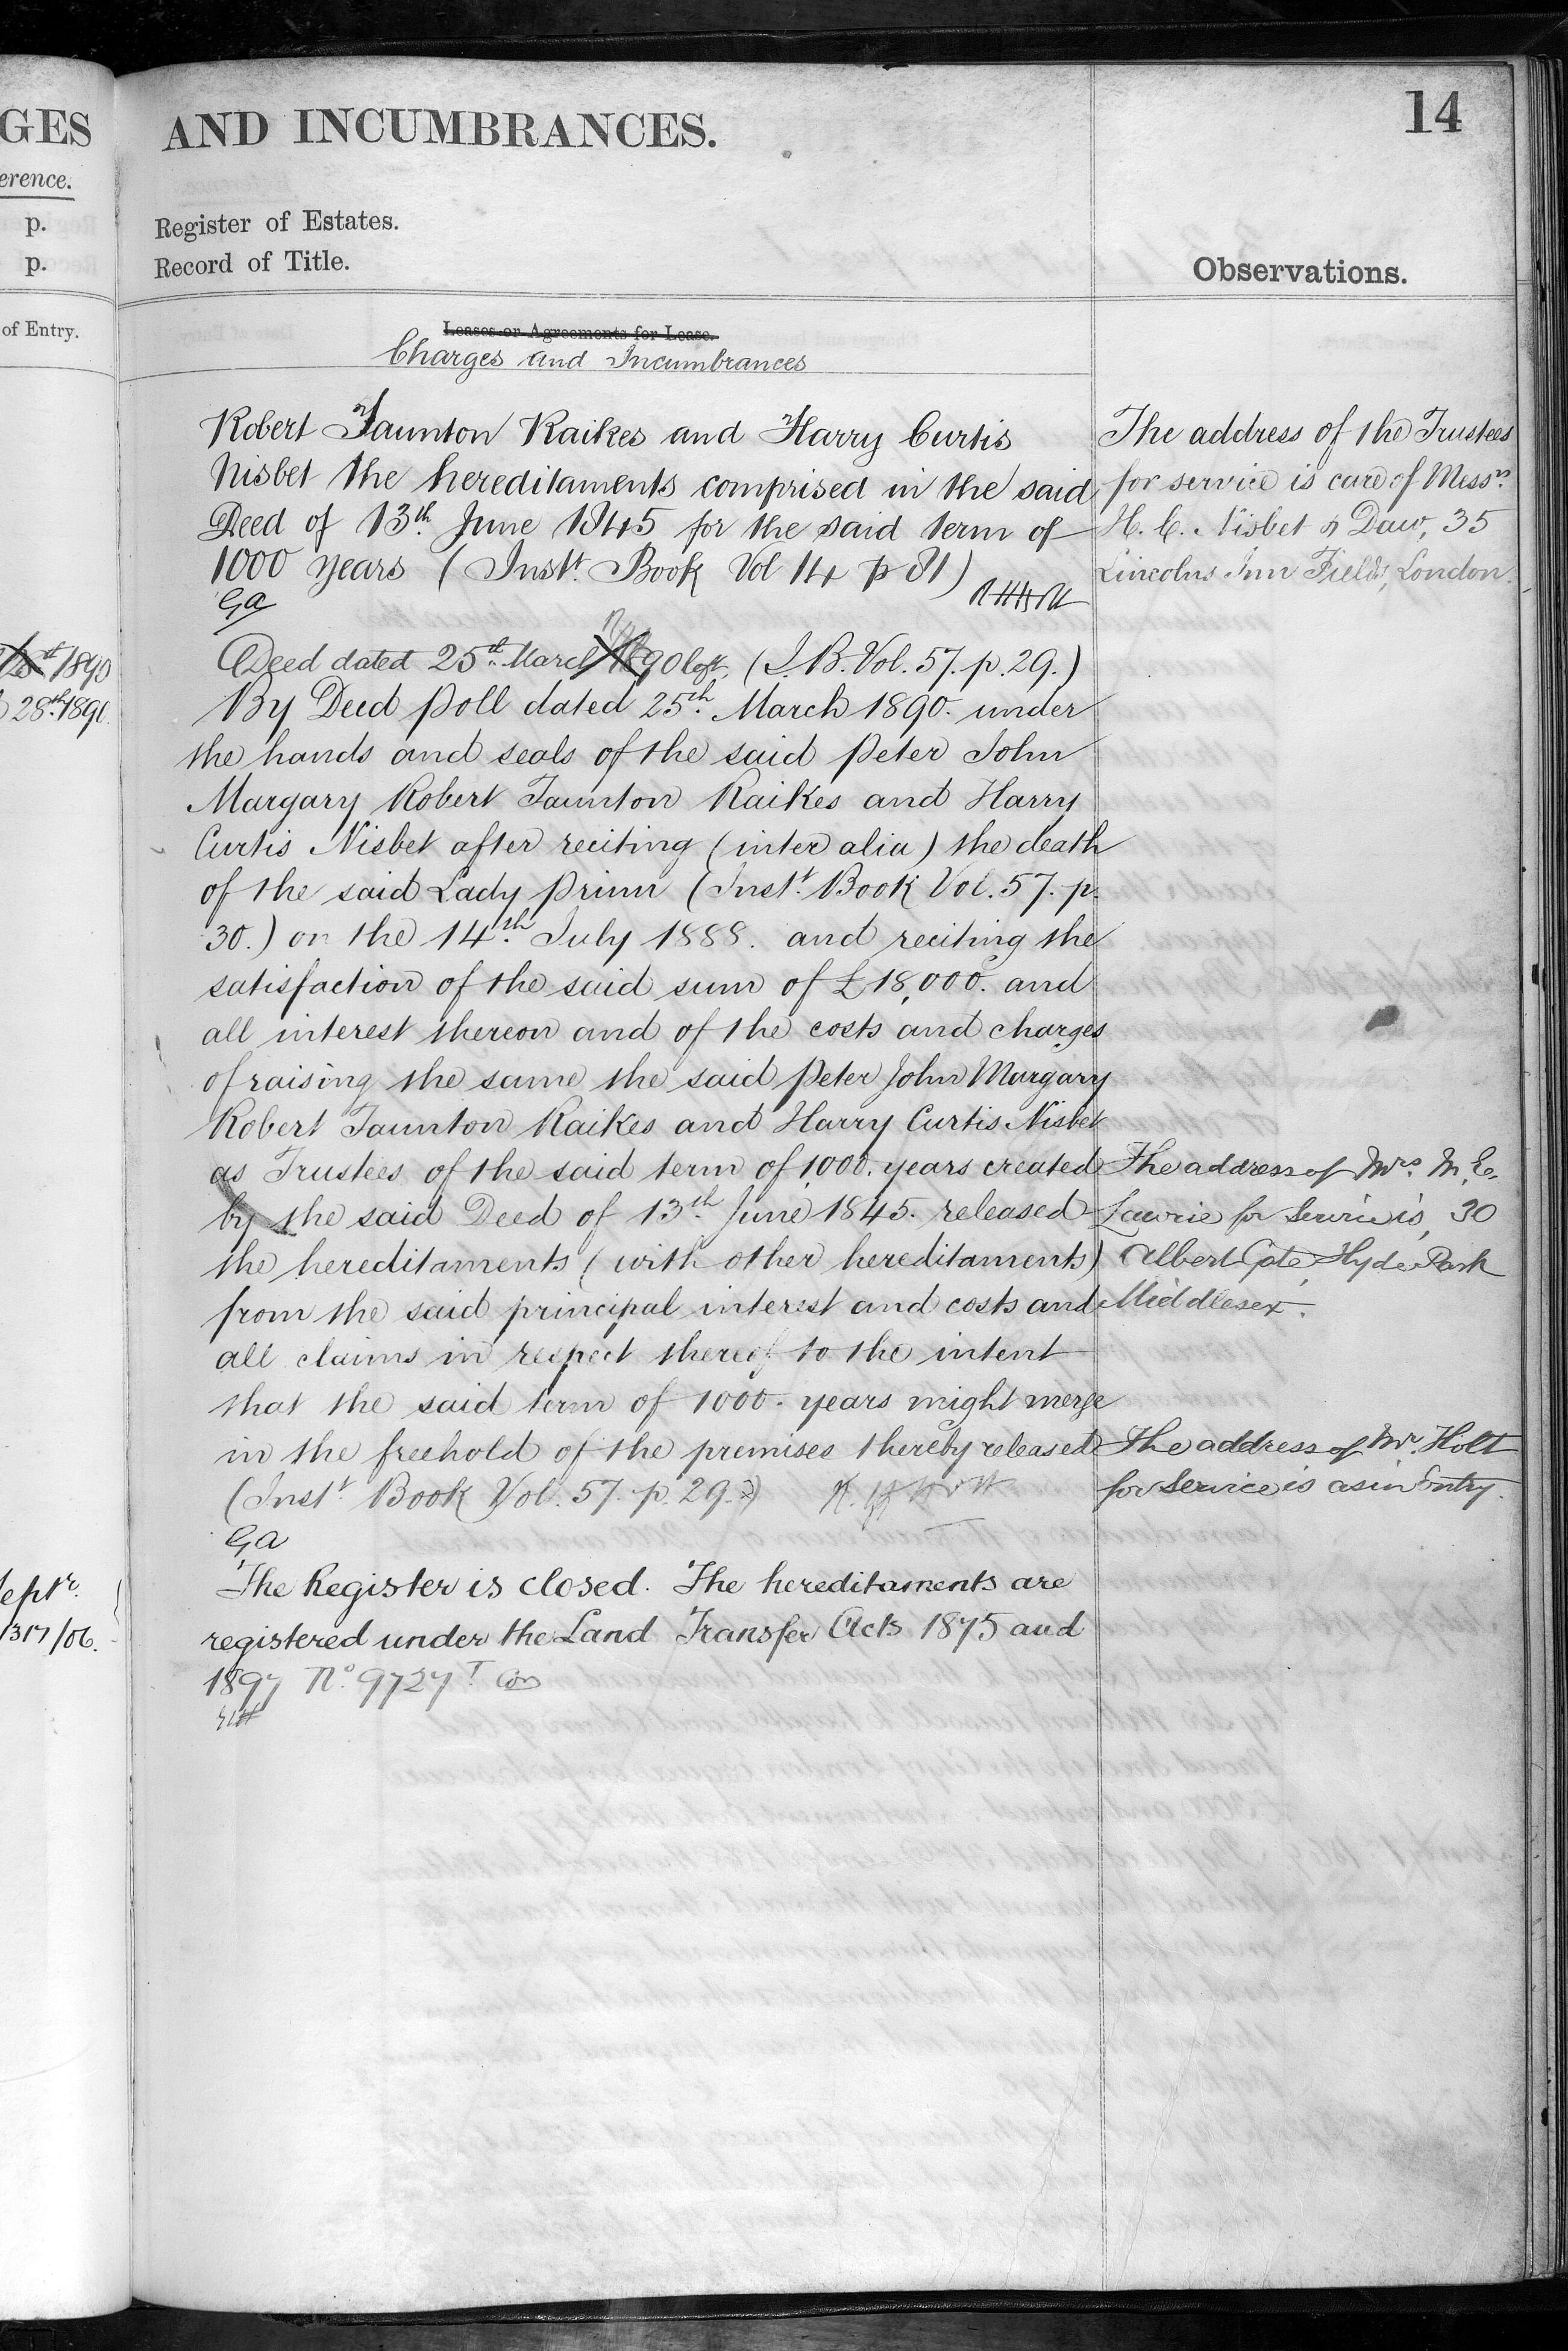 GES
erence.
p.
p.
of Entry.
1890
28th 1890.
Sept r.
1317/06.
AND INCUMBRANCES.
14
Register of Estates.
Record of Title.
Observations.
Leases or Agreements for Lease.
Charges and Incumbrances
Robert Taunton Raikes and Harry Curtis
Nisbet the hereditaments comprised in the said
Deed of 13th June 1845 for the said term of
1000 years (Instt. Book Vol 14 p 81)
Ga
Deed dated 25th March 1890 (I.B. Vol. 57. p. 29.)
By Deed Poll dated 25th March 1890. under
the hands and seals of the said Peter John
Margary Robert Taunton Raikes and Harry
Curtis Nisbet after reciting (inter alia) the death
of the said Lady Prinn (Instt. Book Vol. 57. p.
30.) on the 14th July 1888. and reciting the
satisfaction of the said sum of £18,000. and
all interest thereon and of the costs and charges
of raising the same the said Peter John Margary
Robert Taunton Raikes and Harry Curtis Nisbet
as Trustees of the said term of 1,000. years created
by the said Deed of 13th June 1845. released
the hereditaments (with other hereditaments)
from the said principal interest and costs and
all claims in respect thereof to the intent
that the said term of 1000. years might merge
in the freehold of the premises thereby released
(Instt. Book Vol. 57. p. 29.)
Ga
The Register is closed. The hereditaments are
registered under the Land Transfer Acts 1875 and
1897 No. 9727
The address of the Trustees
for service is care of Messrs.
H. C. Nisbet & Daw, 35
Lincolns Inn Fields, London.
The address of Mrs. M. E.
Lawrie for Service is, 30
Albert Gate, Hyde Park
Middlesex.
The address of Mr. Holt
for Service is as in Entry.